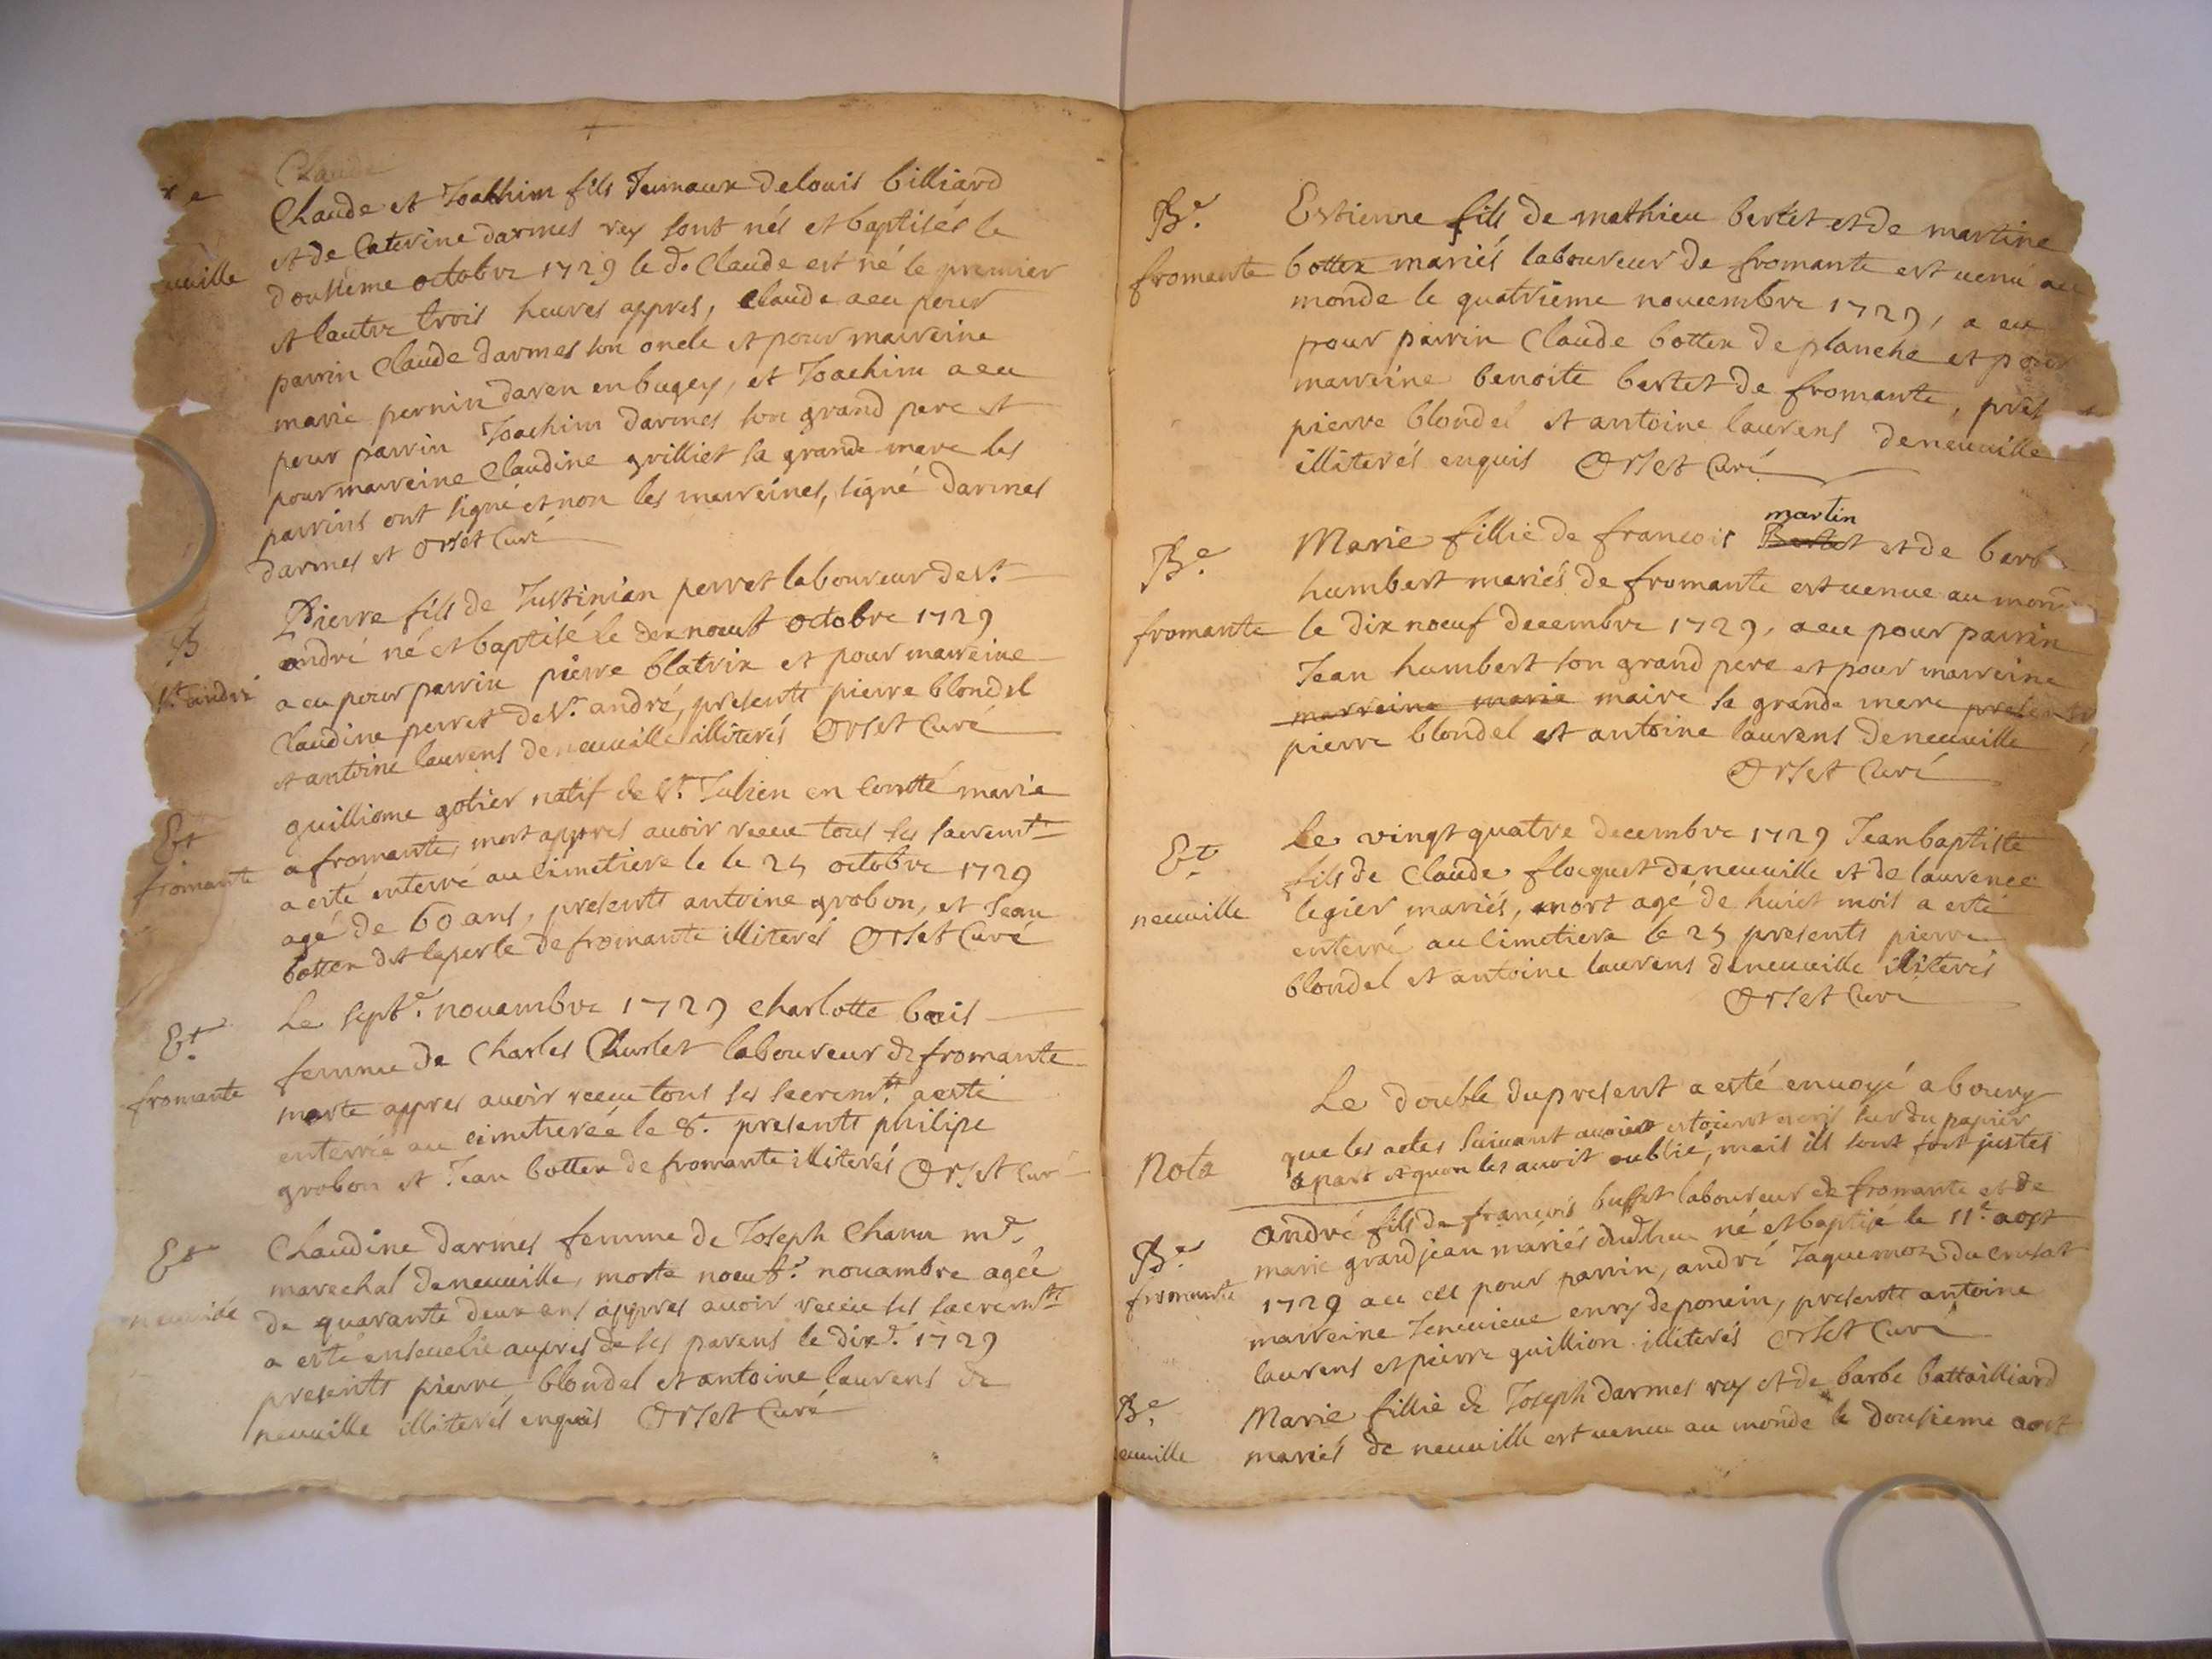 Claude
Claude et Joachim fils Jumaux de louis billiard
et de Caterine darmes rey sont nés et baptisés le
dousieme octobre 1729 le d. Claude est né le premier
neuville
et lautre trois heures appres, claude a eu pour
parrin Claude darmes son oncle et pour marreine
marie pernin daren en bugey, et Joachim a eu
pour parrin Joachim darmes son grand pere et
pour marreine Claudine grilliet sa grande mere les
parrins ont signé et non les marreines, signé darmes
darmes et Orset Curé
B
St. andré
Pierre fils de Justinian perret laboureur de St.
andré né et baptisé le dix noeuf octobre 1729
a eu pour parrin pierre blatrix et pour marreine
Claudine perret de St. andré, presents pierre blondel
et antoine laurens de neuuille illiterés Orset Curé
Et
fromante
guilliome gotier natif de St. Julien en comté marié
a fromante, mort appres auoir receu tous ses sacremts
a esté enterré au cimetiere le le 25 octobre 1729
agé de 60 ans, presents antoine grobon, et Jean
botten dit laperle de fromante illiterés Orset Curé
Et.
fromante
Le septe. nouambre 1729 Charlotte bois
femme de Charles Churlet laboureur de fromante
morte appres auoir receu tous ses sacremts. a esté
enterrée au cimetiereé le 8e. presents philipe
grobon et Jean botten de fromante illiterés Orset Curé
Et
neuuille
Claudine darmes femme de Joseph Chanu me.
marechal de neuuille, morte noeufe. nouambre agée
de quarante deux ans appres auoir receu ses sacremts
a esté enseuelie aupres de ses parens le dixe. 1729
presents pierre blondel et antoine laurens de
neuuille illiterés enquis Orset Curé
Be.
fromante
Estienne fils de mathieu bertet et de martine
botten mariés laboureur de fromante est uenu au
monde le quatrieme nouembre 1729, a eu
pour parrin Claude botten de planche et pour
marreine benoite bertet de fromante, prets
pierre blondel et antoine laurens de neuuille
illiterés enquis Orset Curé
Be.
fromante
martin
Marie fillie de francois Bertet et de barbe
humbert mariés de fromante est uenue au mon
le dix noeuf decembre 1729, a eu pour parrin
Jean humbert son grand pere et pour marreine
marreine marie maire sa grande mere presents
pierre blondel et antoine laurens de neuuille
Orset Curé
Et.
neuuille
Le vingt quatre decembre 1729 Jean baptiste
fils de Claude floquet de neuuille et de laurence
legier mariés, mort agé de huict mois a esté
enterré au cimetiere le 25 presents pierre
blondel et antoine laurens de neuuille illiterés
Orset Curé
Le double du present a esté enuoyé a bourg
Nota
que les actes suiuant auoient estoient ecris sur du papier
apart et quon les auoit oublié, mais ils sont fort justes
Be.
fromante
andré fils de françois buffet laboureur de fromante et de
marie grandjean mariés dud lieu né et baptisé le 11e aost
1729 a eu pour parrin, andré Jaquemoz du crusat
marreine Jeneuieue enry de poncin, presents antoine
laurens et pierre guillion illiterés Orset Curé
Be.
euuille
Marie fillie de Joseph darmes rey et de barbe battailliard
mariés de neuuille est uenue au monde le dousieme aost